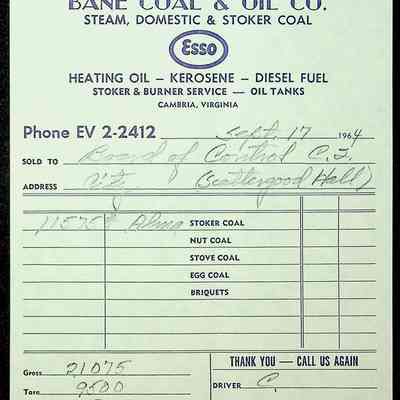 BANE COAL & OIL CO.
STEAM, DOMESTIC & STOKER COAL
Esso
HEATING OIL — KEROSENE — DIESEL FUEL
STOKER & BURNER SERVICE — OIL TANKS
CAMBRIA, VIRGINIA
Phone EV 2-2412 Sept. 17 1964
SOLD TO Board of Control C.I.
ADDRESS City (Scattergood Hall)
11575# STOKER COAL
NUT COAL
STOVE COAL
EGG COAL
BRIQUETS
Gross 21075
THANK YOU — CALL US AGAIN
Tare 9500
DRIVER C.